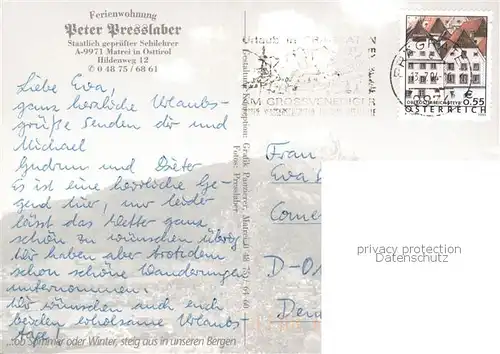 Ferienwohnung
Peter Presslaber
Staatlich geprüfter Schilehrer
A-9971 Matrei in Osttirol
Hildenweg 12
✆ 0 48 75 / 68 61
Liebe Eva,
ganz herzliche Urlaubs-
grüße senden dir und
Michael
Gudrun und Dieter
Es ist eine herrliche Ge-
gend hier, nur leider
lässt das Wetter ganz
schön zu wünschen übrig
Wir haben aber trotzdem
schon schöne Wanderungen
unternommen.
Wir wünschen auch euch
beiden erholsame Urlaubs-
tage!
...ob Sommer oder Winter, steig aus in unseren Bergen
Urlaub in
AM GROSSVENEDIGER
€ 0.55
ÖSTERREICH
Frau
Eva
D-0
privacy protection
Datenschutz